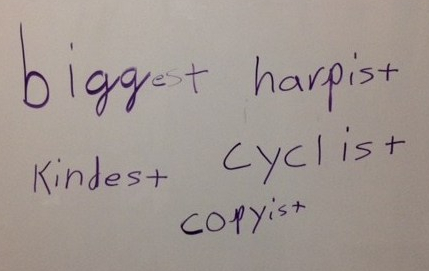 biggest harpist
Kindest cyclist
copyist